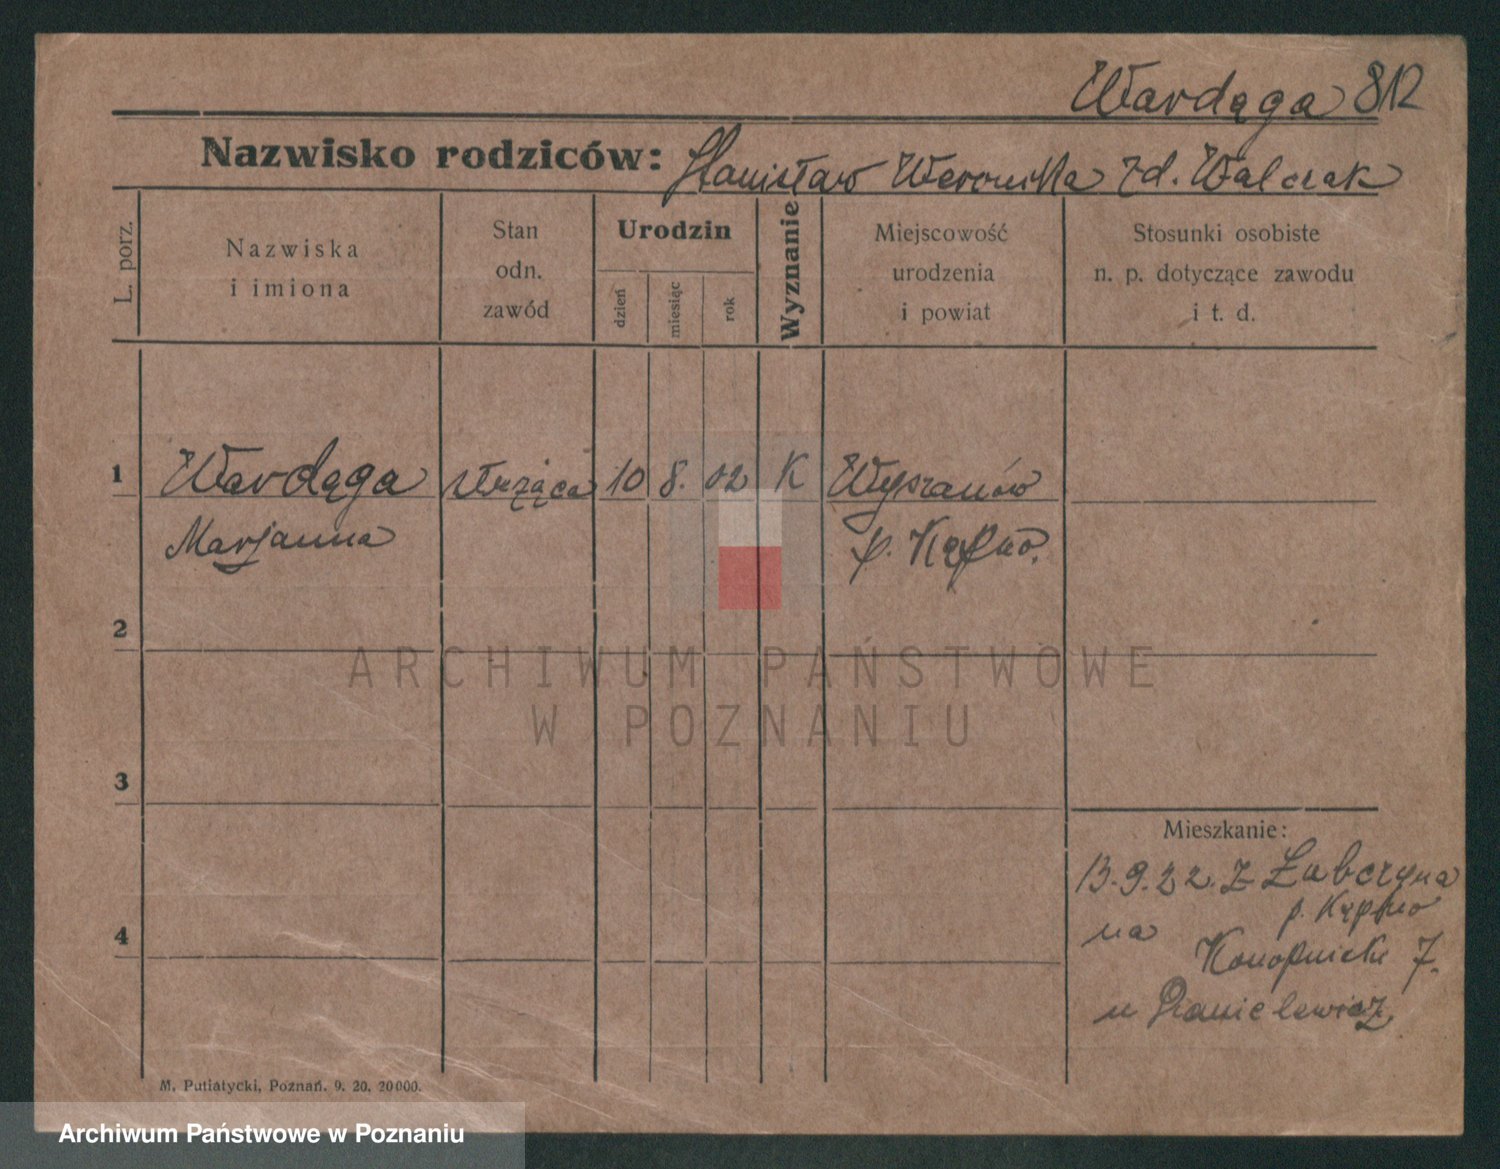 Wardęga 812
Nazwisko rodziców: Stanisław Weronika zd. Walczak
L. porz.
Nazwiska
i imiona
Stan
odn.
zawód
Urodzin
dzień
miesiąc
rok
Wyznanie
Miejscowość
urodzenia
i powiat
Stosunki osobiste
n. p. dotyczące zawodu
i t. d.
1 Wardęga służąca 10 8. 02 K Wyszanów
Marjanna p. Kępno.
2
ARCHIWUM PAŃSTWOWE
W POZNANIU
3
Mieszkanie:
13.9.22. z
p. Kępno
4
na
7.
u Danielewicz
M. Putiatycki, Poznań. 9. 20. 20000.
Archiwum Państwowe w Poznaniu